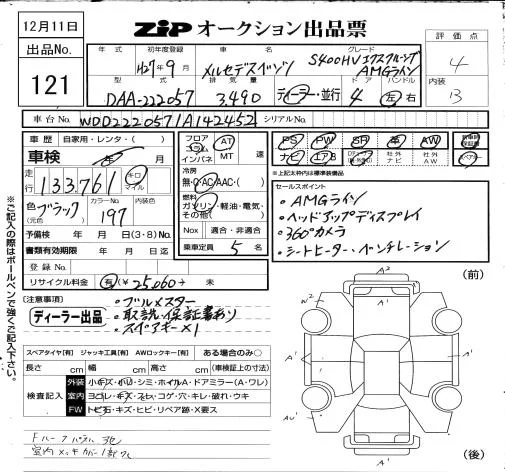 12月11日
ZiP オークション出品票
出品No.
121
評価点
4
内装
B
年式 初年度登録 車名 グレード
H27年9月 メルセデスベンツ S400HVエクスクルーシブ
AMGライン
型式 排気量 ドア ハンドル
DAA-222057 3,490 ディーラー・並行 4 左 右
車台No. WDD2220571A142452 シリアルNo.
車歴 自家用・レンタ・( )
車検 年 月
走行 133,761 キロ マイル
色 ブラック カラーNo. 197 内装色
(元色)
予備検 年 月 日(3・8)No.
書類有効期限 年 月 日
登録No.
リサイクル料金 有(¥25,060)→ 未
フロア コラム AT
インパネ MT 速
冷房
無・C・AC・AAC・( )
燃料
ガソリン・軽油・電気・
その他( )
Nox 適合・非適合
乗車定員 5 名
PS PW SR 革 AW 新車時保証書
ナビ エアB 社外ナビ 社外AW
※上記太枠内は標準装備品
セールスポイント
・AMGライン
・ヘッドアップディスプレイ
・360°カメラ
・シートヒーター、ベンチレーション
※ご記入の際はボールペンで強くご記入下さい。
(注意事項)
ディーラー出品
・ブルメスター
・取説、保証書あり
・スペアキー×1
スペアタイヤ[有] ジャッキ工具[有] AWロックキー[有] ある場合のみ○
長さ cm 幅 cm 高さ cm (車検証上の寸法)
検査記入
外装 小キズ・ホソ・シミ・ホイルA・ドアミラー(A・ワレ)
室内 ヨゴレ・キズ・スレ・コゲ・穴・キレ・破れ・ウキ
FW トビ石・キズ・ヒビ・リペア跡・X要ス
(前)
A2
W2
A1
A1
A1
A1
AU1
A1
(後)